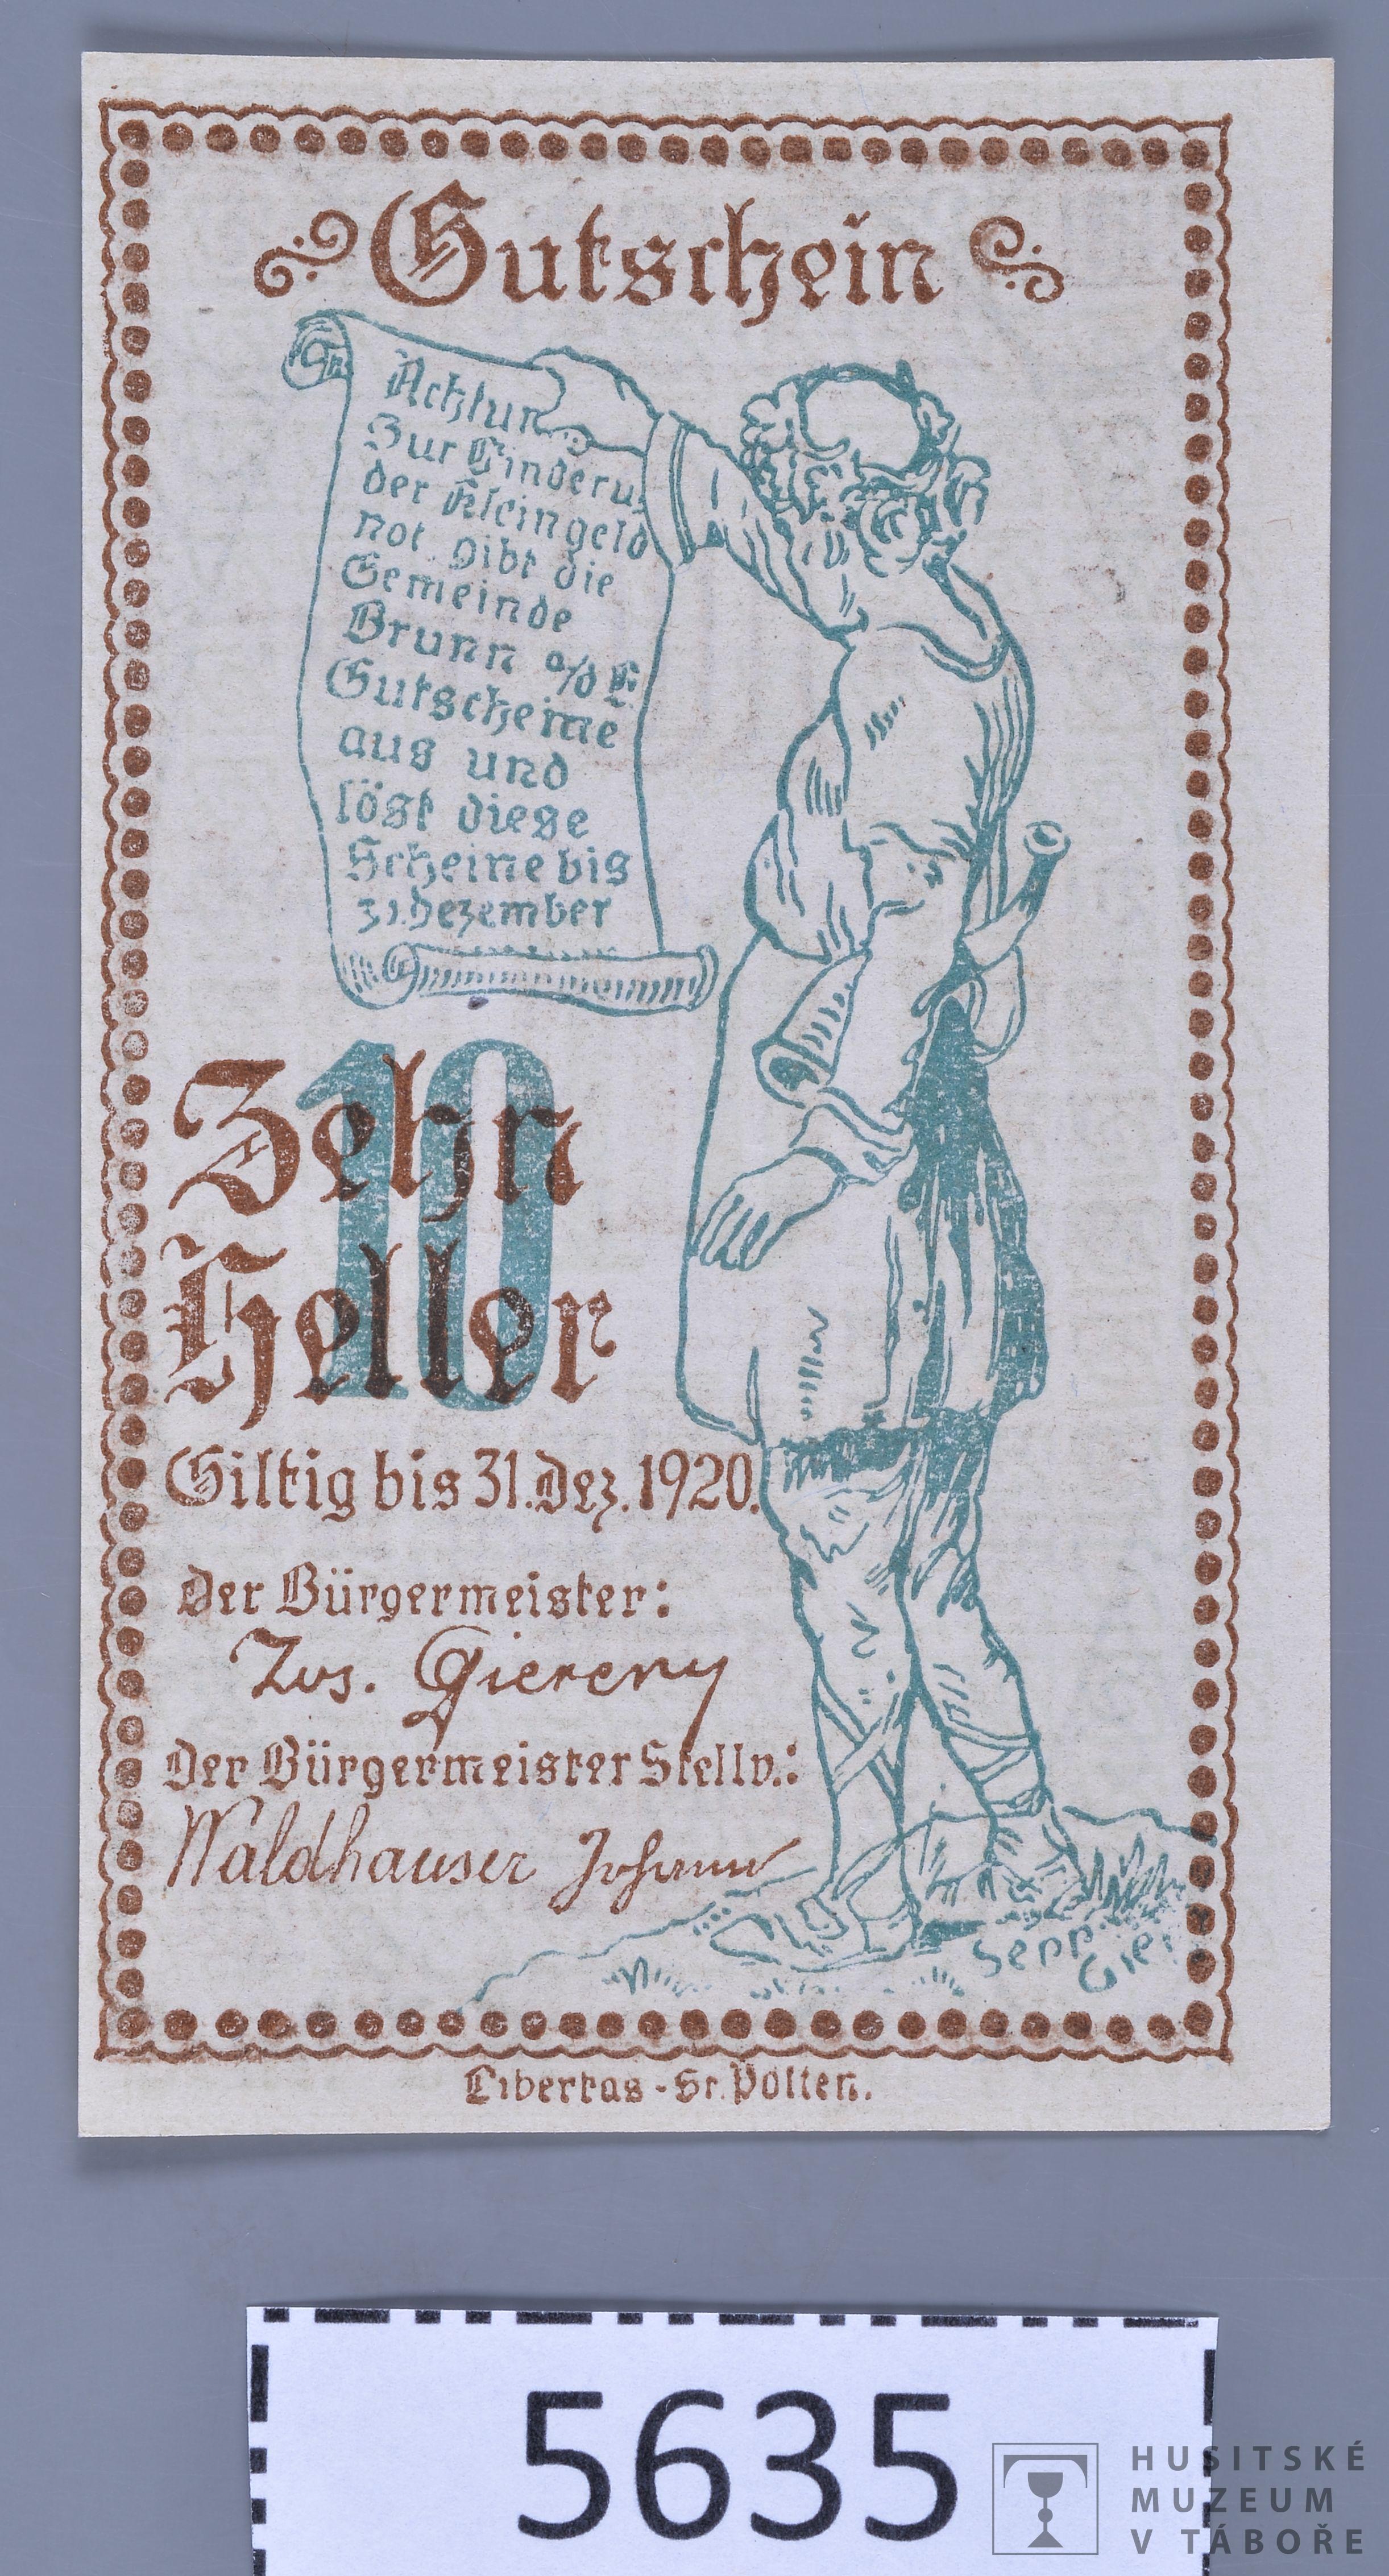 Gutschein
Achtun
Zur Linderu
der Kleingeld
not gibt die
Gemeinde
Brunn a/d E.
Gutscheine
aus und
löst diese
Scheine bis
31. Dezember
10
Zehn
Heller
Giltig bis 31. Dez. 1920.
Der Bürgermeister:
Jos. Giereny
Der Bürgermeister Stellv.:
Waldhauser Johann
Sepp
Gie
Libertas - St. Pölten.
5635
HUSITSKÉ
MUZEUM
V TÁBOŘE